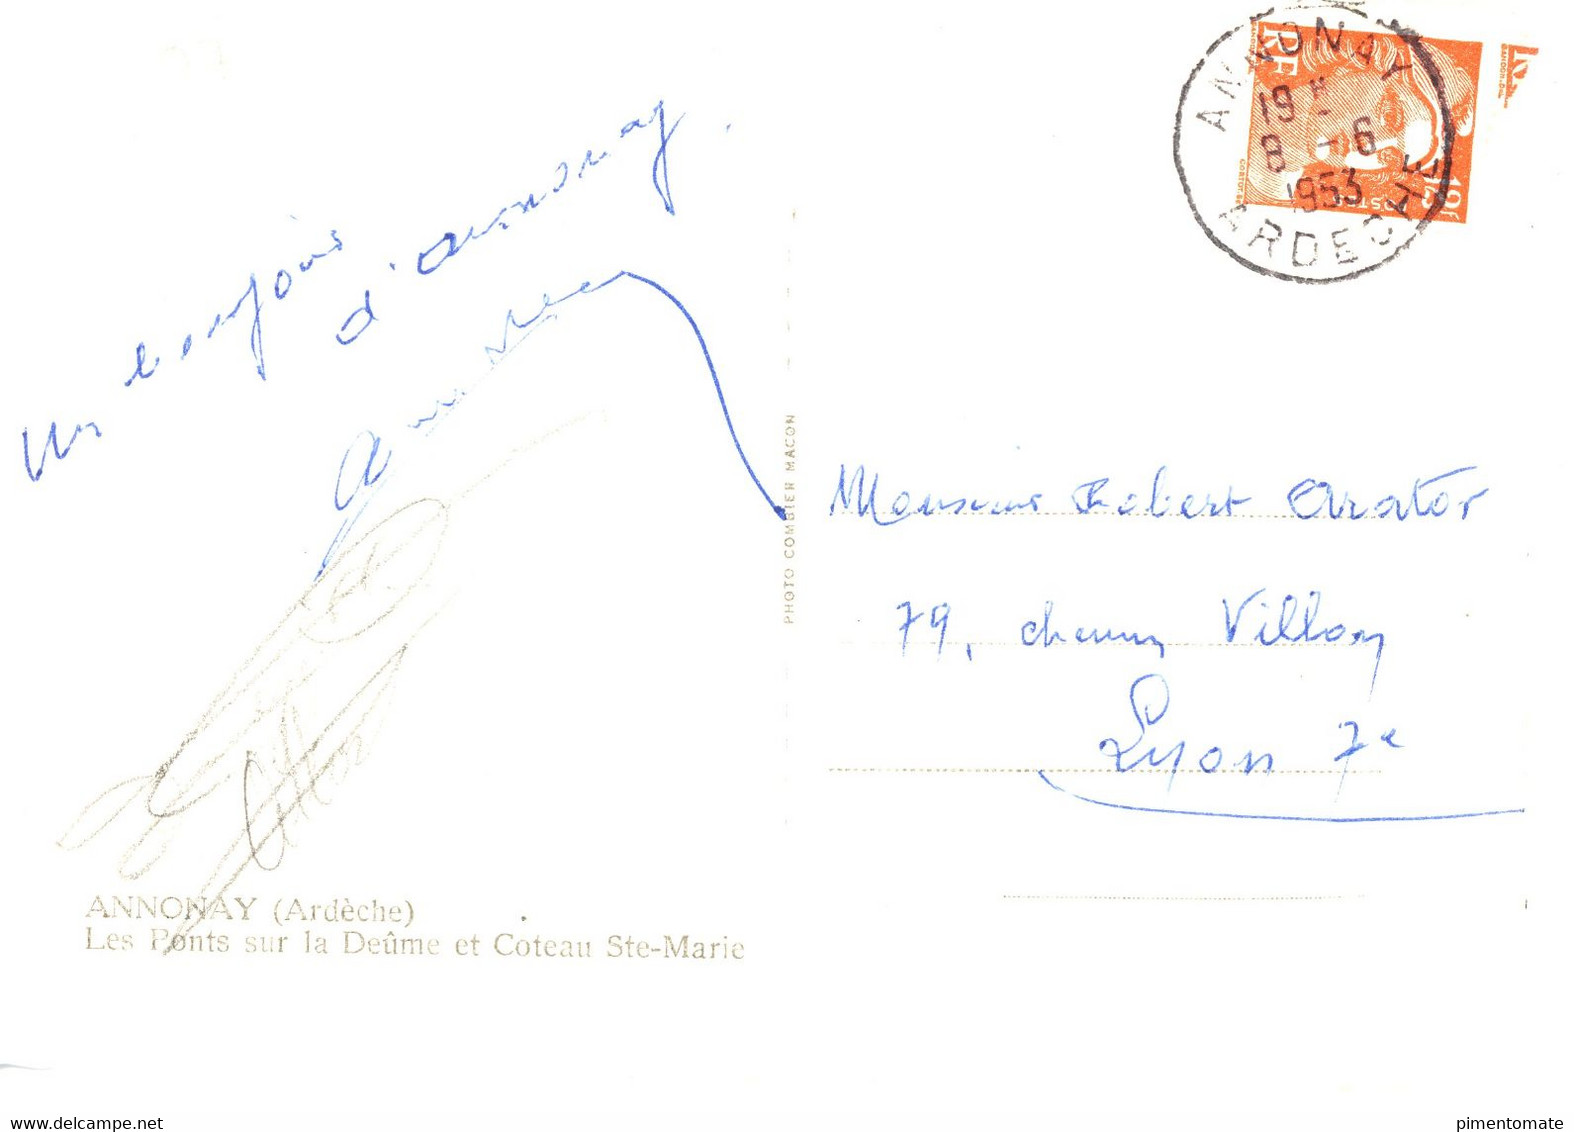 Un bonjour
d'annonay.
PHOTO COMBIER MACON
ANNONAY
19 H
8 - 6
1953
ARDECHE
RF
GANDON
POSTES
12F
CORTOT.SC
Monsieur Robert Arator
79, chemin Villon
Lyon 7e
ANNONAY (Ardèche)
Les Ponts sur la Deûme et Coteau Ste-Marie
Delcampe.net
pimentomate